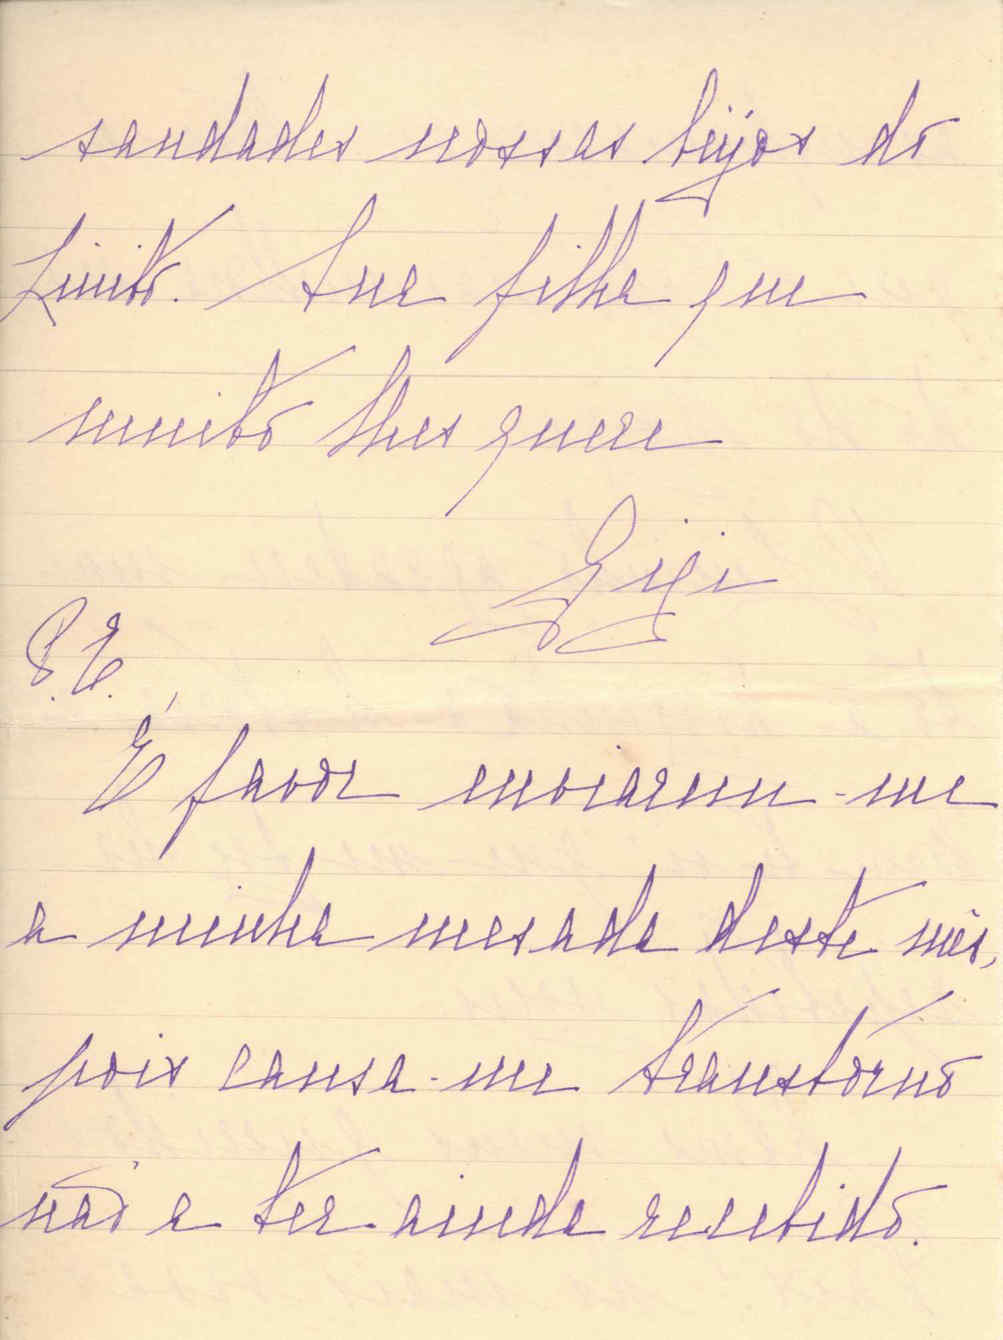 saudades nossas beijos do
Linito. Sua filha que
muito lhes quere
Gigi
P.E.
É favor enviarem-me
a minha mesada deste mês,
pois causa-me transtorno
não a ter ainda recebido.